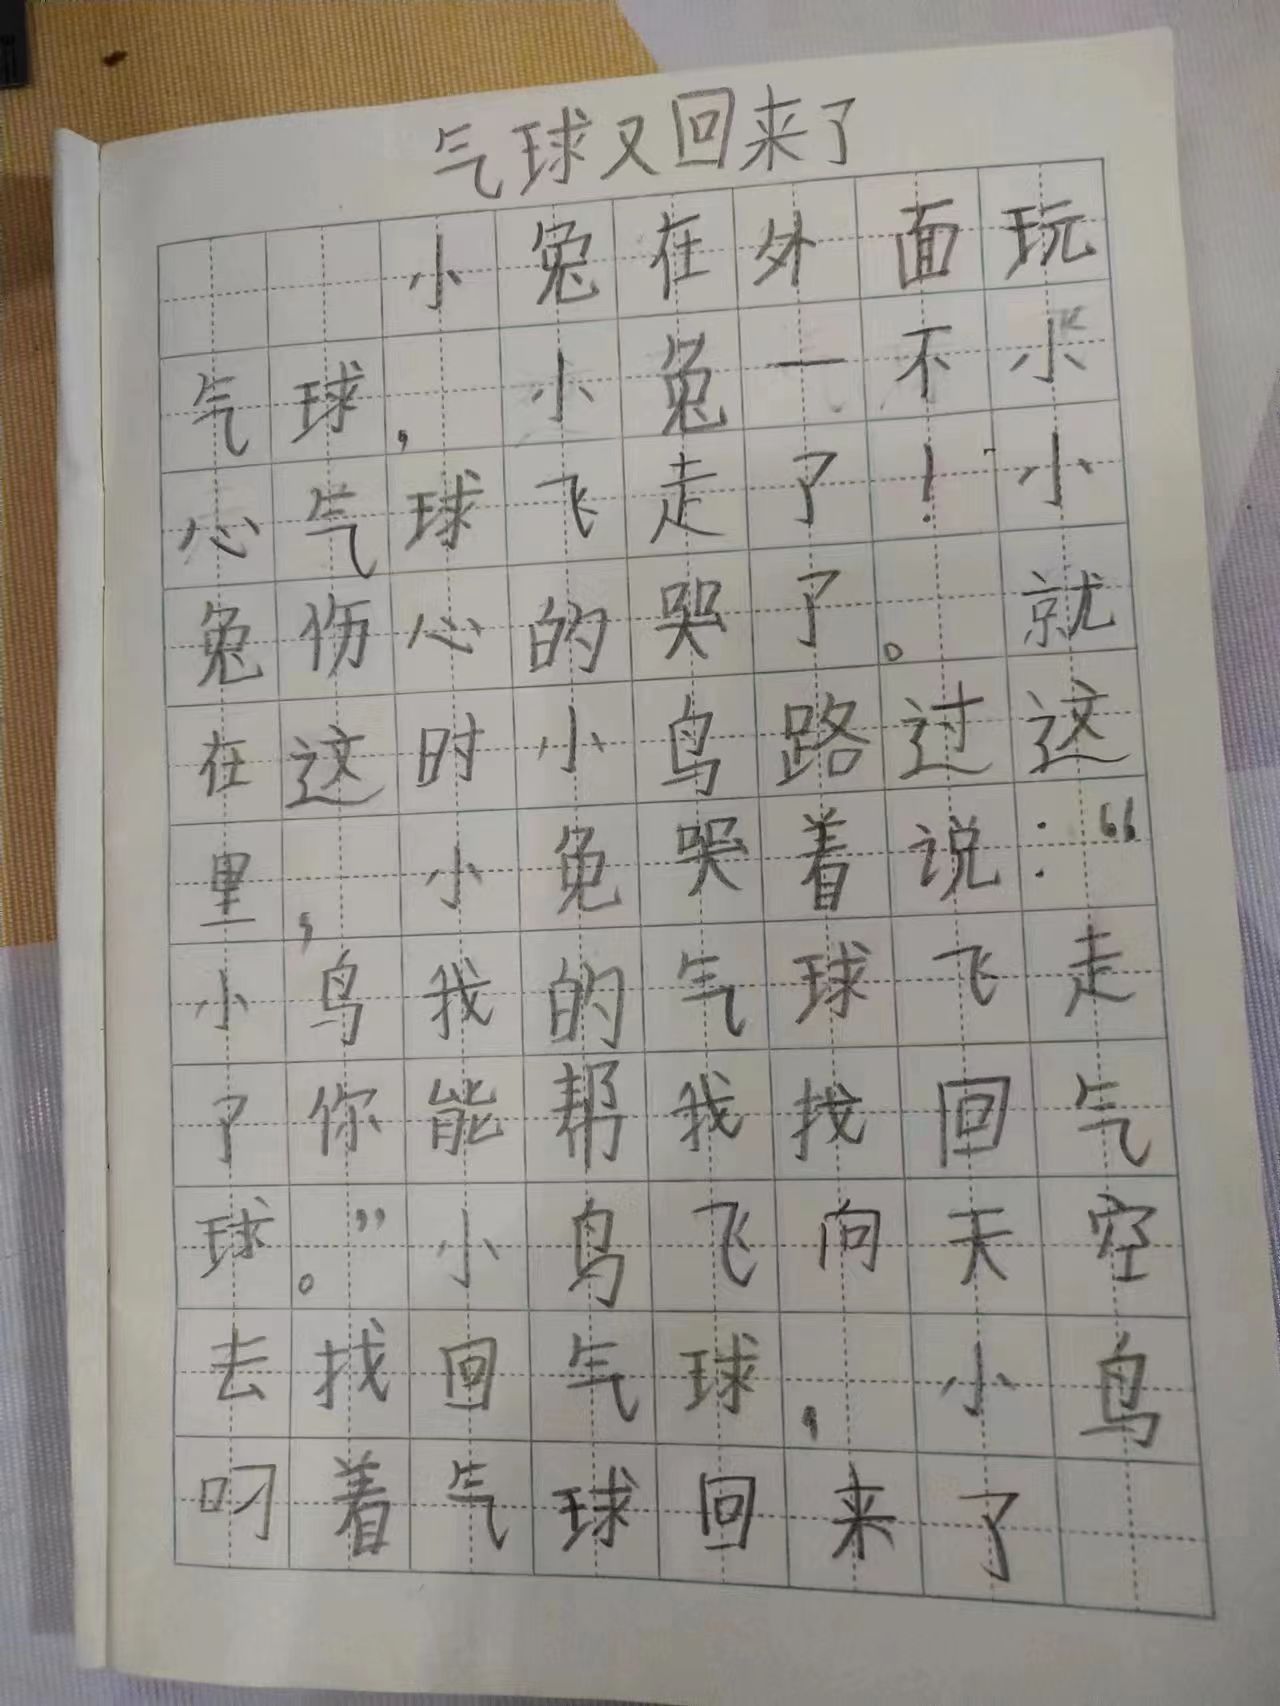 气球又回来了
小兔在外面玩
气球，小兔一不小
心气球飞走了！小
兔伤心的哭了。就
在这时小鸟路过这
里，小兔哭着说：“
小鸟我的气球飞走
了你能帮我找回气
球。”小鸟飞向天空
去找回气球，小鸟
叼着气球回来了